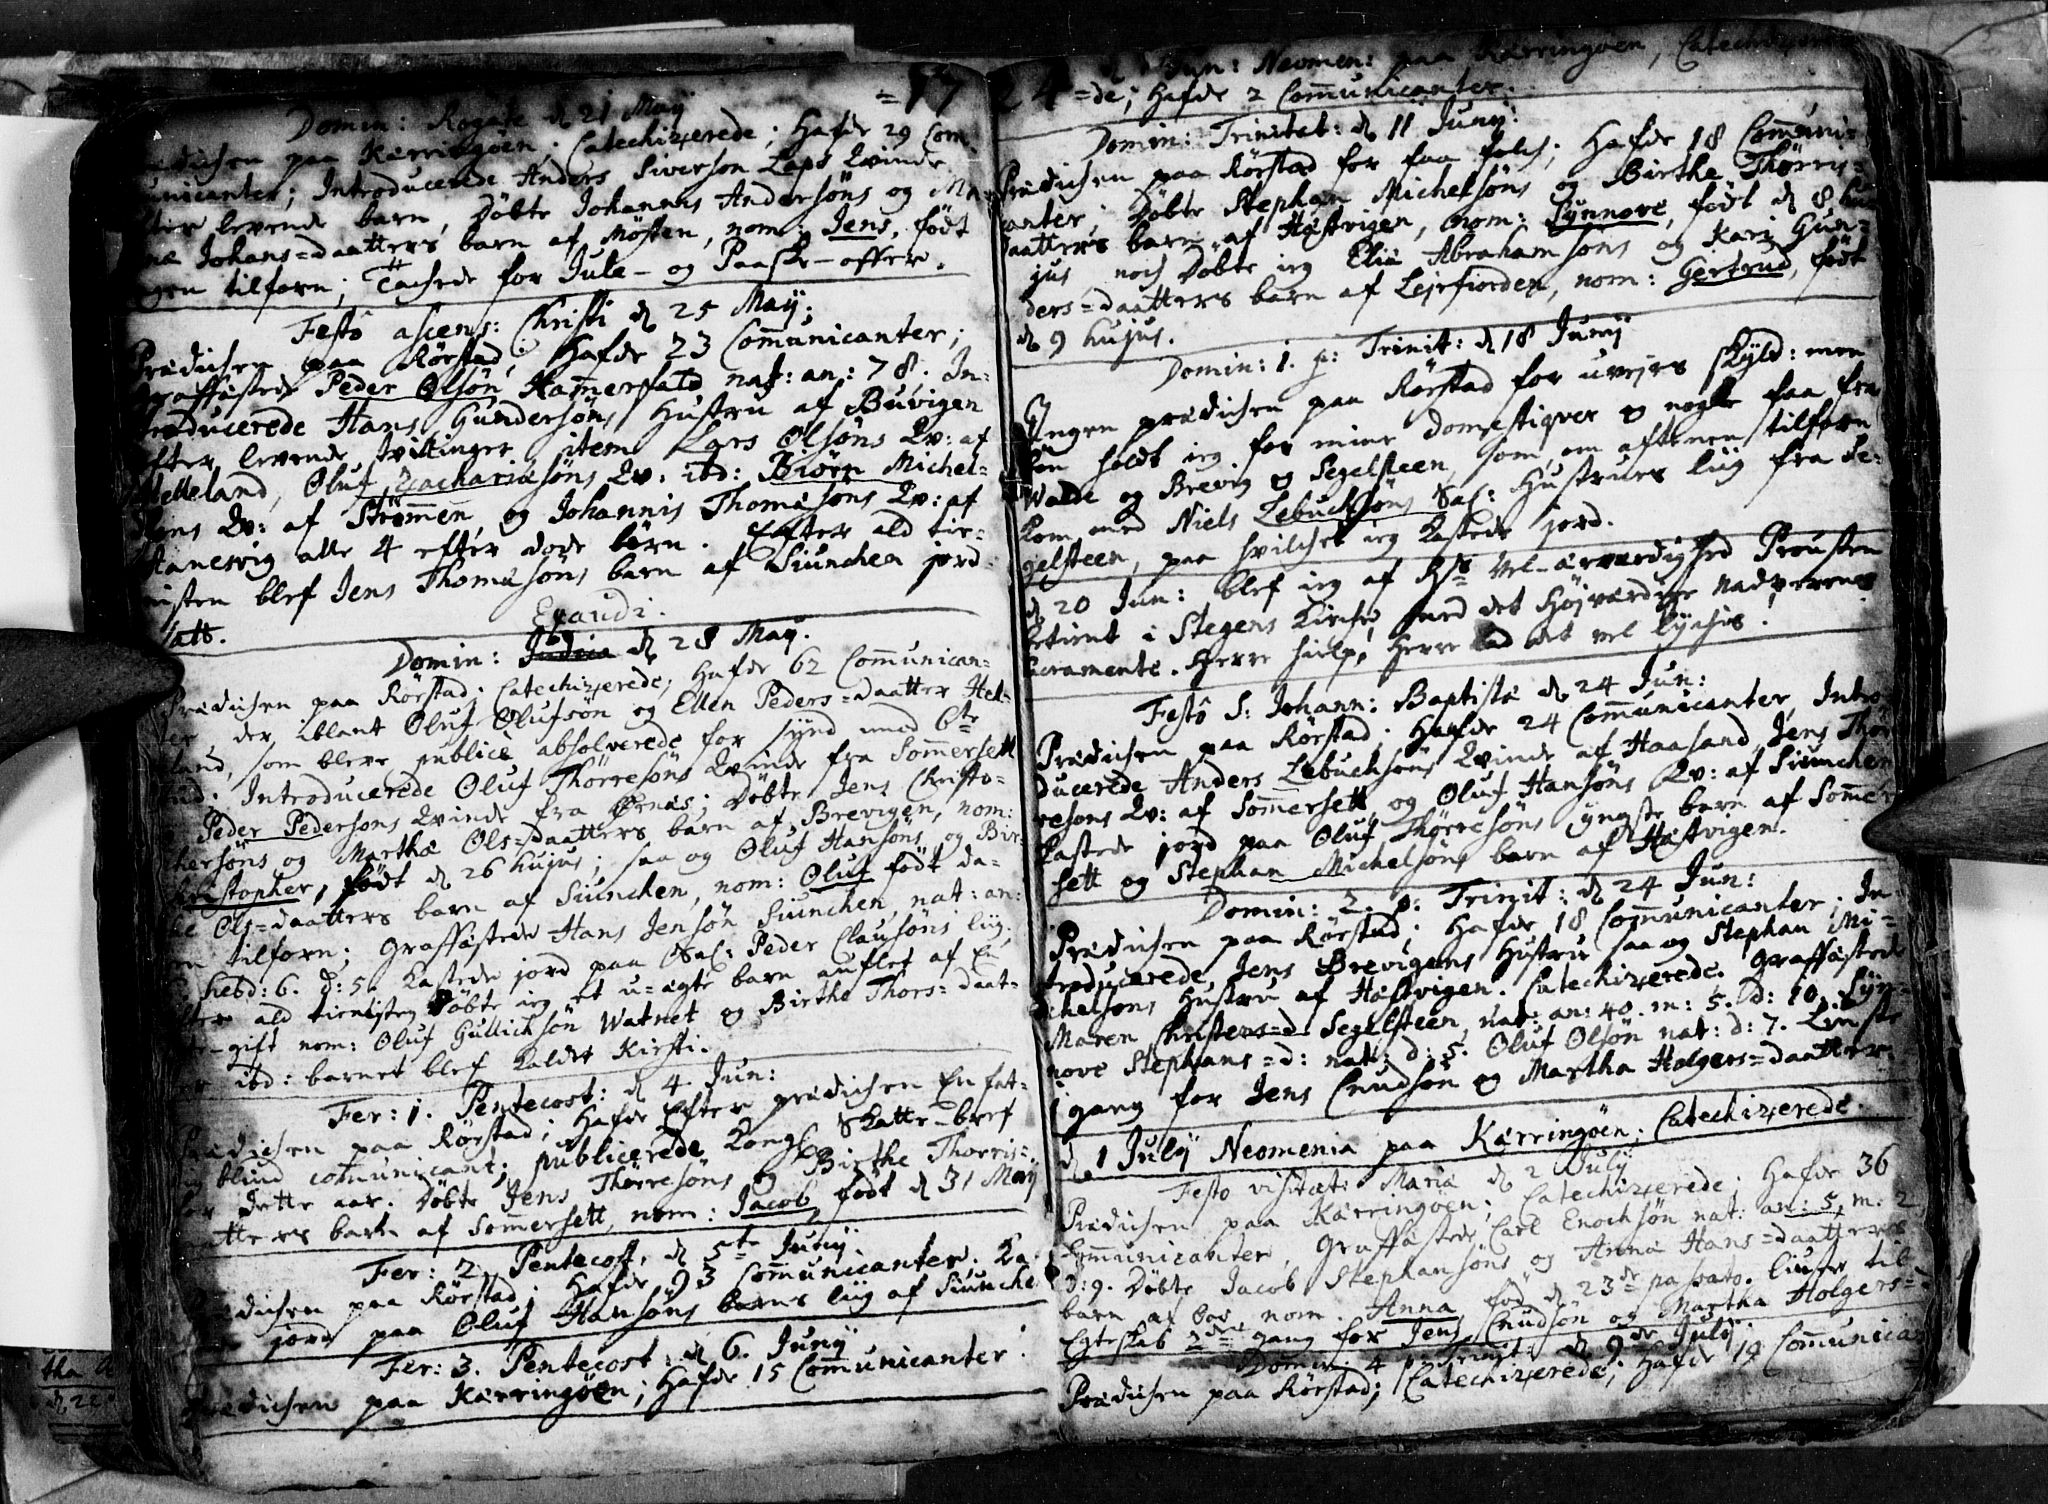 =17
Domin: Rogate d. 21 May
Prædichen paa Kærringøen. Catechizerede; Hafde 29 Com-
municanter; Introducerede Anders Siversøn Laps Qvinde
efter levende barn, Døbte Johannis Andersøns og Ma-
Johans=daatters barn af Møsten, nom: Jens, født
tilforn; Tachede for Jule- og Paaske-offer.
Festô ascens: Christi d. 25 May;
Prædichen paa Rørstad; Hafde 23 Communicanter;
Graffæstede Peder Olsøn Hammerfald nat: an: 78. In-
troducerede Hans Gundersøns Hustru af Buvigen
efter levende tvillinger item Lars Olsøns Qv: af
Helleland, Oluf Zachariæsøns Qv. ibd: Biørn Michel-
søns Qv: af Strømmen og Johannis Thomæsøns Qv: af
alle 4 efter døde børn. Efter ald tie-
nisten blef Jens Thomæsøns barn af Siunchen jord
satt.
Exaudi.
Domin: d. 28 May.
Prædichen paa Rørstad; Catechizerede; Hafde 62 Communican-
ter, der iblant Oluf Olufsøn og Ellen Peders=daatter Hel-
land, som bleve publicè absolverede for synd mod 6te
bud. Introducerede Oluf Thørresøns Qvinde fra Sommersett
Peder Pedersøns Qvinde fra Ørnes; Døbte Jens Christo-
phersøns og Marthæ Ols=daatters barn af Brevigen, nom:
Christopher, født d. 26 hujus; saa og Oluf Hansøns og Bir-
the Ols=daatters barn af Siunchen, nom: Oluf født da-
gen tilforn; Graffæstede Hans Jensøn Siunchen nat: an:
hebd: 6. d: 5. Kastede jord paa Sal: Peder Clausøns liig.
Efter ald tienisten Døbte ieg et u=ægte barn auflet af En
gift nom: Oluf Gullichsøn Watnet og Birthe Thors=daat-
ter ibd: barnet blef kaldet Kirsti.
Fer: 1. Pentecost: d. 4 Jun:
Prædichen paa Rørstad; Hafde Efter prædichen En fat-
tig blind communicant; publicerede Kongl. Skatte-bref
for dette aar. Døbte Jens Thørresøns og Birthe Thorris-
daatters barn af Sommersett, nom: Jacob, født d. 31 May
Fer: 2. Pentecost, d. 5te Junij.
Prædichen paa Rørstad; Hafde 93 Communicanter. Ka-
stede jord paa Oluf Hansøns barns liig af Siunche
Fer: 3. Pentecost: d. 6. Junij
Prædichen paa Kærringøen; Hafde 15 Communicanter.
24
Jun: Neomen: paa Kærringøen, Catechizere
=de; Hafde 2 Communicanter.
Domin: Trinitat: d. 11 Junij:
Prædichen paa Rørstad for faa folch; Hafde 18 Communi-
canter; Døbte Stephan Michelsøns og Birthe Thørris=
daatters barn af Hæstvigen, nom: Synnove, født d. 8 hu-
jus noch Døbte ieg Eliæ Abrahamsøns og Kari Gun-
ders=daatters barn af Lejrfiorden, nom: Gertrud, født
d. 9 hujus.
Domin: 1. p: Trinit: d. 18 Junij
Ingen prædichen paa Rørstad for uvejrs skyld: men
holdt ieg for mine Domestiqver og nogle faa fra
Walde og Brevig og Segelsteen, som om aftenen tilforn
kom med Niels Lebuchsøns Sal: Hustrues liig fra Se-
gelsteen, paa hvilchet ieg kastede jord.
d. 20 Jun: blef ieg af Hs Vel-ærværdighed Prousten
betient i Stegens Kirche med det Højværdige Nadverens
Sacramente. Herre hielp, Herre lad det vel lyches!
Festô S: Johann: Baptistæ d. 24 Jun:
Prædichen paa Rørstad; Hafde 24 Communicanter, Intro-
ducerede Anders Lebuchsøns Qvinde af Haasand, Jens Thør-
resøns Qv: af Sommersett og Oluf Hansøns Qv: af Siunchen
Kastede jord paa Oluf Thørresøns yngste barn af Sommer-
sett og Stephan Michelsøns barn af Hæstvigen.
Domin: 2. p: Trinit: d. 24 Jun:
Prædichen paa Rørstad; Hafde 18 Communicanter. In-
troducerede Jens Brevigens Hustru saa og Stephan Mi-
chelsøns Hustru af Hæstvigen. Catechizerede. Graffæstede
Maren Christens=d. Segelsteen, nat: an: 40. m: 5. d: 10. Syn-
nove Stephans=d: nat: d: 5. Oluf Olsøn nat: d: 7. Liuste
1 gang for Jens Cnudsøn og Martha Holgers=daatter.
d. 1 Julij Neomenia paa Kærringøen; Catechizerede.
Festo visitat: Mariæ d. 2 Julij
Prædichen paa Kærringøen; Catechizerede; Hafde 36
Communicanter, Graffæstede Carl Enochsøn nat: an: 5, m: 2
d: 9. Døbte Jacob Stephansøns og Anna Hans=daatters
barn af nom. Anna fød d. 23de passato. Liuste til
Egteskab 2de gang for Jens Cnudsøn og Martha Holgers=d
Domin: 4 p: Trinit: d. 9de Julij
Prædichen paa Rørstad; Catechizerede; Hafde 19 Communican